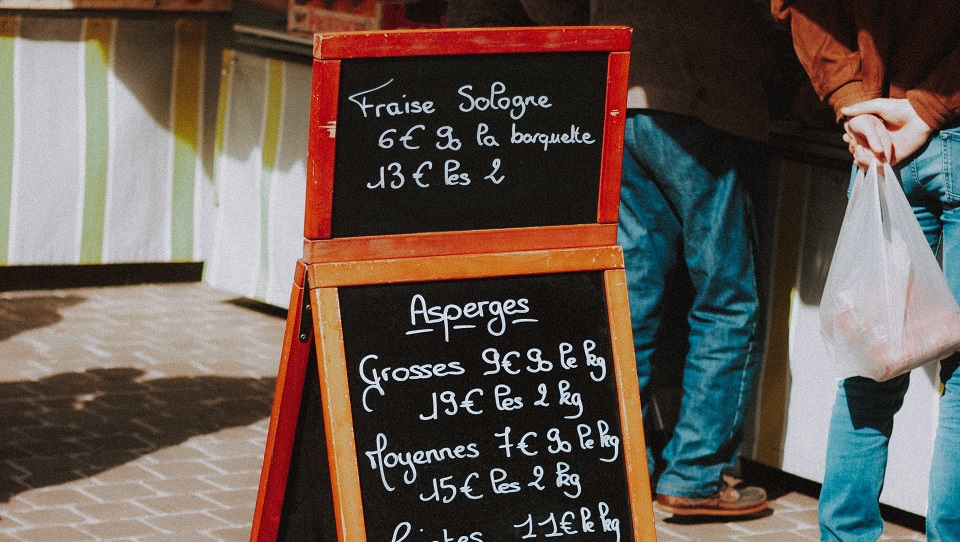 Fraise Sologne
6€90 la barquette
13€ les 2
Asperges
Grosses 9€90 le kg
19€ les 2 kg
Moyennes 7€90 le kg
15€ les 2 kg
Pointes 11€ le kg